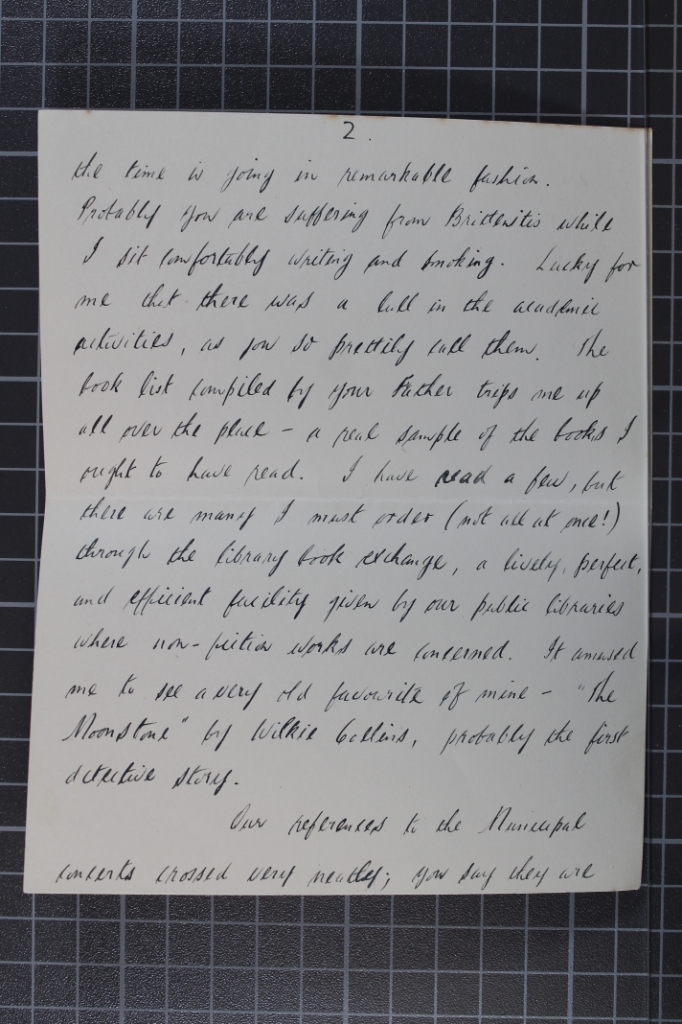 2.
the time is going in remarkable fashion.
Probably you are suffering from Bridewitis while
I sit comfortably writing and smoking. Lucky for
me that there was a lull in the academic
activities, as you so prettily call them. The
book list compiled by your Father trips me up
all over the place – a real sample of the books I
ought to have read. I have read a few, but
there are many I must order (not all at once!)
through the library book exchange, a lively, perfect,
and efficient facility given by our public libraries
where non-fiction works are concerned. It amused
me to see a very old favourite of mine – "The
Moonstone" by Wilkie Collins, probably the first
detective story.
Our references to the Municipal
concerts crossed very neatly; you say they are